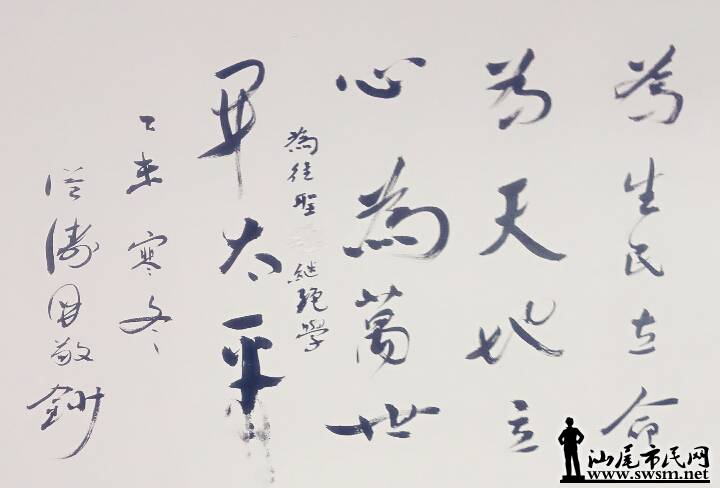 為生民立命
為天地立
心為萬世
為往聖 継絕學
開太平
乙未寒冬
敬鈔
汕尾市民网
www.swsm.net